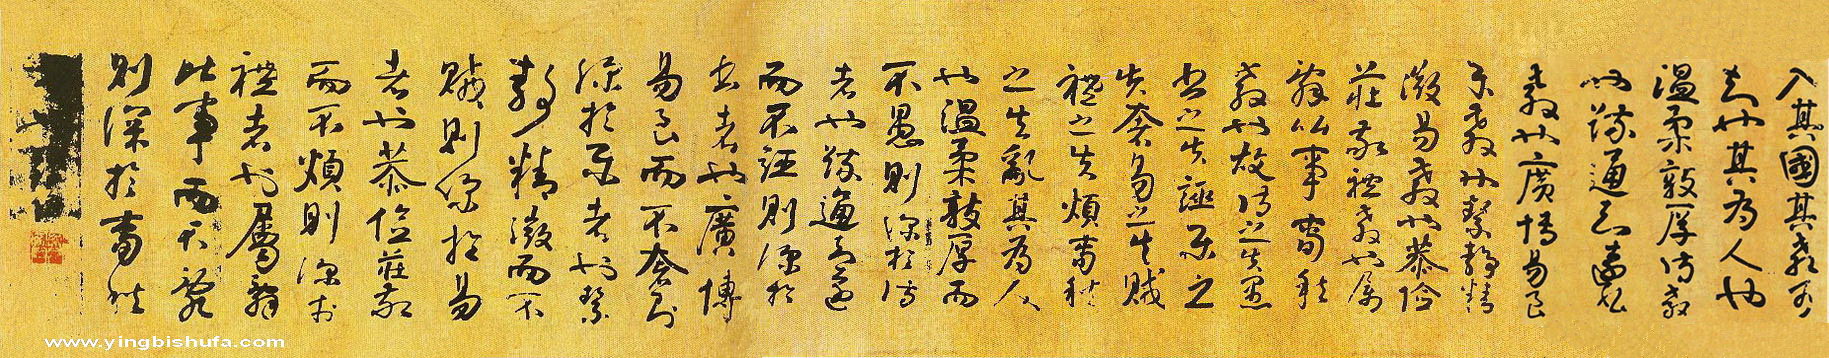 入其國其教可
知也其為人也
溫柔敦厚詩教
也疏通知遠書
教也廣博易良
樂教也絜靜精
微易教也恭儉
莊敬禮教也屬
辭比事春秋
教也故詩之失愚
書之失誣樂之
失奢易之失賊
禮之失煩春秋
之失亂其為人
也溫柔敦厚而
不愚則深於詩
者也疏通知遠
而不誣則深於
書者也廣博
易良而不奢則
深於樂者也絜
靜精微而不
賊則深於易
者也恭儉莊敬
而不煩則深於
禮者也屬辭
比事而不亂
則深於春秋
www.yingbishufa.com